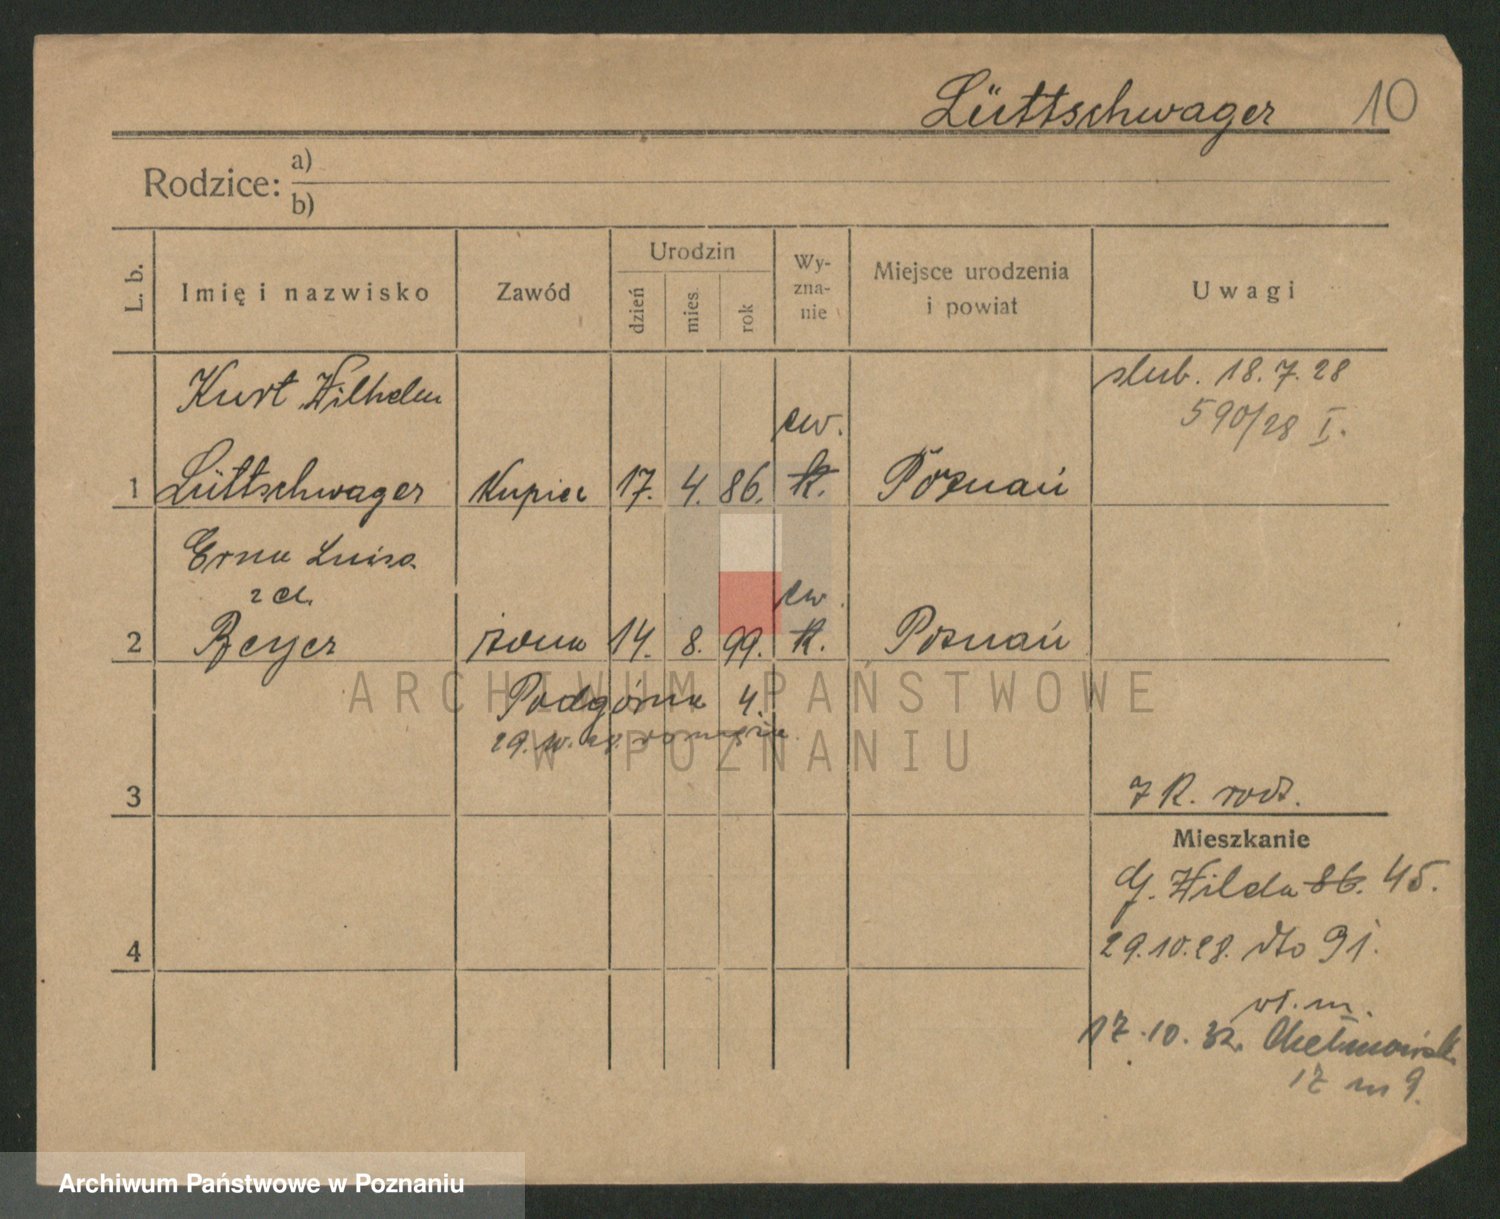 Lüttschwager 10
Rodzice: a)
b)
L. b.
Imię i nazwisko
Zawód
Urodzin
dzień
mies.
rok
Wy-
zna-
nie
Miejsce urodzenia
i powiat
Uwagi
Kurt Wilhelm
ew.
ślub. 18.7.28
590/28 I.
1 Lüttschwager Kupiec 17. 4. 86. k. Poznań
Erna Luisa
z d.
ew.
2 Beyer żona 14. 8. 99. k. Poznań
Podgórna 4.
ARCHIWUM PAŃSTWOWE
W POZNANIU
3
7 K. rodz.
Mieszkanie
G. Wilda 86. 45.
4
29.10.28. dto 91.
wł. m.
17.10.32. Chełmońsk.
17 m 9.
Archiwum Państwowe w Poznaniu